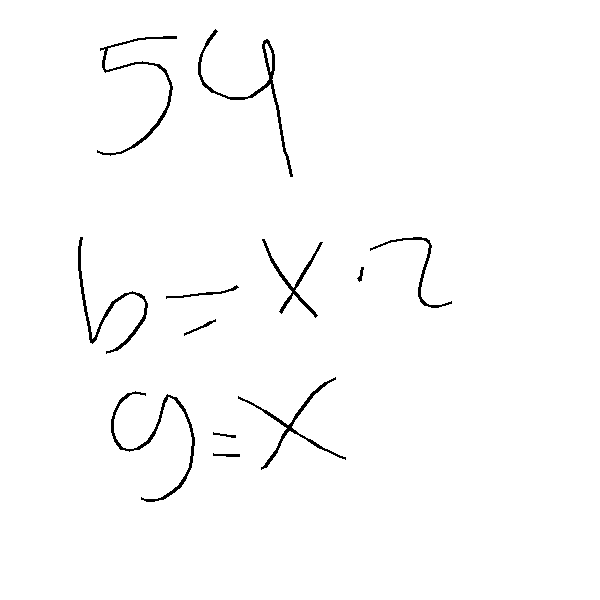 54
b = x · 2
g = x